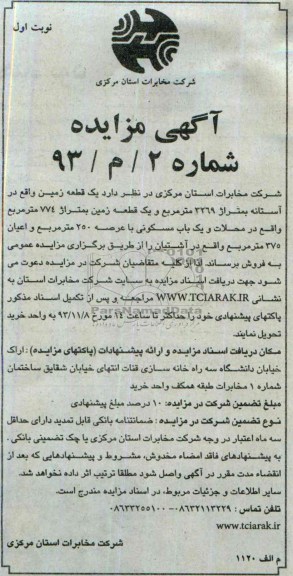 نوبت اول
شرکت مخابرات استان مرکزی
آگهی مزایده
شماره ۲ / م / ۹۳
شرکت مخابرات استان مرکزی در نظر دارد یک قطعه زمین واقع در
آستانه بمتراژ ۳۳۶۹ مترمربع و یک قطعه زمین بمتراژ ۷۷۴ مترمربع
واقع در محلات و یک باب مسکونی با عرصه ۲۵۰ مترمربع و اعیان
۳۷۵ مترمربع واقع در آشتیان را از طریق برگزاری مزایده عمومی
به فروش برساند. لذا از کلیه متقاضیان شرکت در مزایده دعوت می
شود جهت دریافت اسناد مزایده به سایت شرکت مخابرات استان به
نشانی WWW.TCIARAK.IR مراجعه و پس از تکمیل اسناد مذکور
پاکتهای پیشنهادی خود را حداکثر تا ساعت ۱۴ مورخ ۹۳/۱۱/۸ به واحد خرید
تحویل نمایند.
مکان دریافت اسناد مزایده و ارائه پیشنهادات (پاکتهای مزایده) : اراک
خیابان دانشگاه سه راه خانه سازی قنات انتهای خیابان شقایق ساختمان
شماره ۱ مخابرات طبقه همکف واحد خرید
مبلغ تضمین شرکت در مزایده: ۱۰ درصد مبلغ پیشنهادی
نوع تضمین شرکت در مزایده : ضمانتنامه بانکی قابل تمدید دارای حداقل
سه ماه اعتبار در وجه شرکت مخابرات استان مرکزی یا چک تضمینی بانکی .
به پیشنهادهای فاقد امضاء مخدوش، مشروط و پیشنهادهایی که بعد از
انقضاء مدت مقرر در آگهی واصل شود مطلقا ترتیب اثر داده نخواهد شد.
سایر اطلاعات و جزئیات مربوط، در اسناد مزایده مندرج است.
تلفن تماس : ۰۸۶۳۲۱۱۳۲۲۹ - ۰۸۶۳۳۲۵۵۱۰۰
www.tciarak.ir
شرکت مخابرات استان مرکزی
م الف ۱۱۲۰